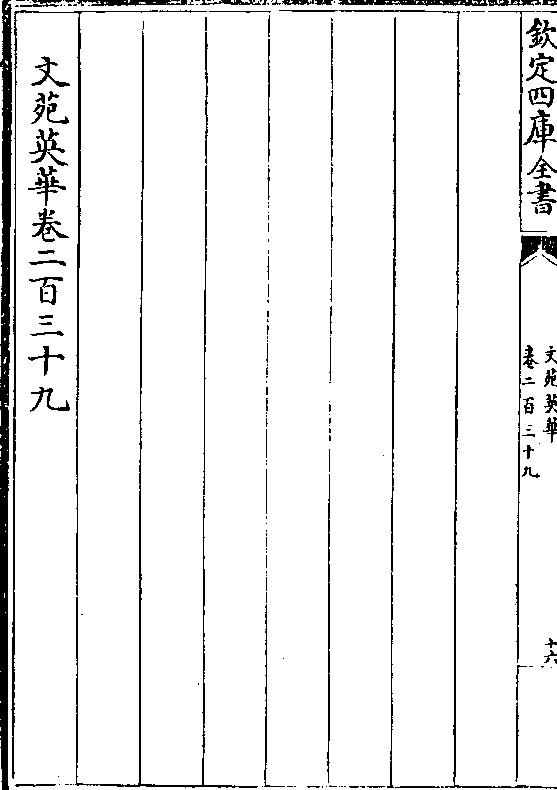 欽定四庫全書
文苑英華
卷二百三十九
十六
文苑英華卷二百三十九